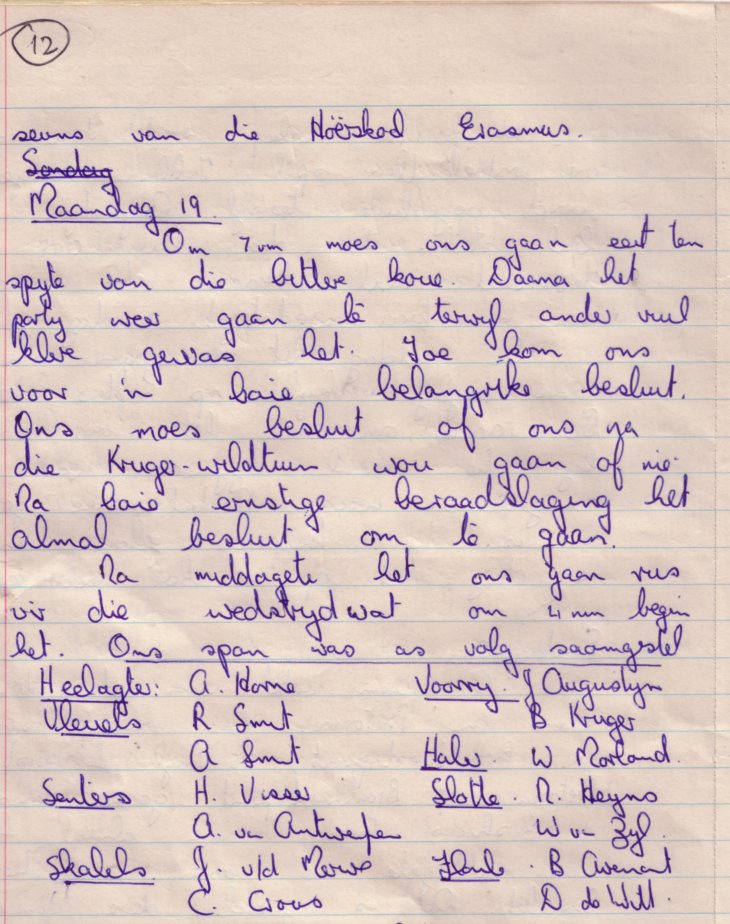 12
seuns van die Hoërskool Erasmus.
Sondag
Maandag 19.
Om 7 vm moes ons gaan eet ten
spyte van die bittere koue. Daarna het
party weer gaan lê terwyl ander vuil
klere gewas het. Toe kom ons
voor 'n baie belangrike besluit.
Ons moes besluit of ons na
die Kruger-wildtuin wou gaan of nie.
Na baie ernstige beraadslaging het
almal besluit om te gaan.
Na middagete het ons gaan rus
vir die wedstryd wat om 4 nm begin
het. Ons span was as volg saamgestel
Heelagter: A. Horne Voorry. J Augustyn
Vleuels R Smit B Kruger
A Smit Haker. W Morland.
Senters H. Visser Slotte. N. Heyns
A. van Antwerpen W van Zyl.
Skakels. J. v/d Merwe Flanke. B Avenant
C. Crous D de Witt.